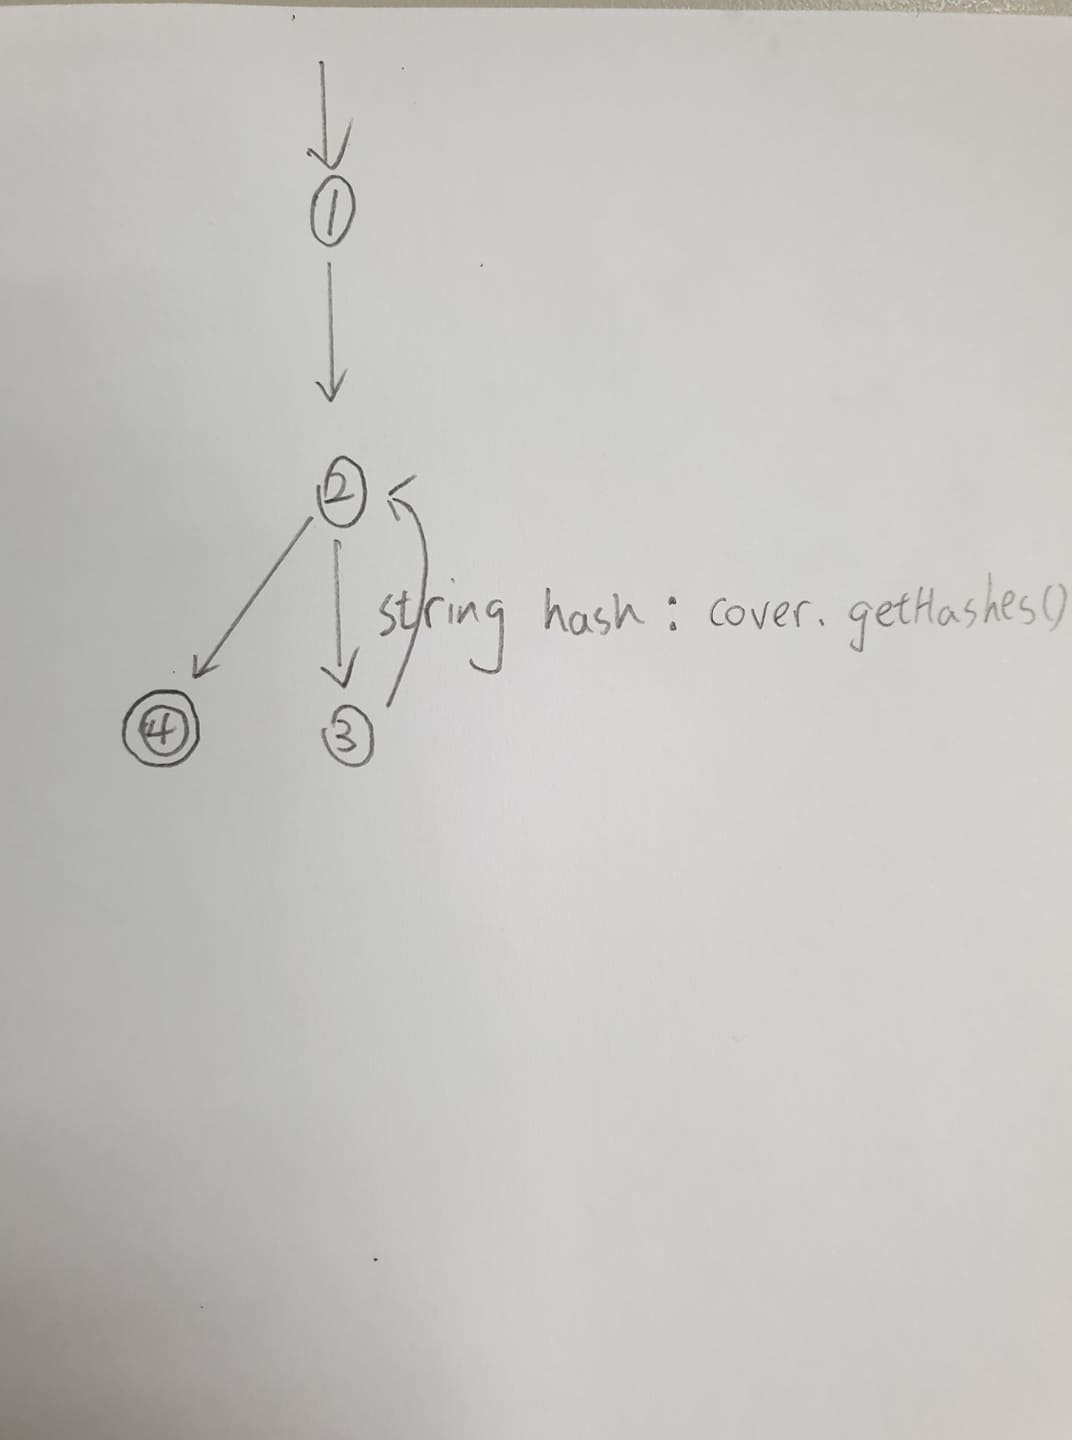 1
2
string hash : cover. getHashes()
4
3